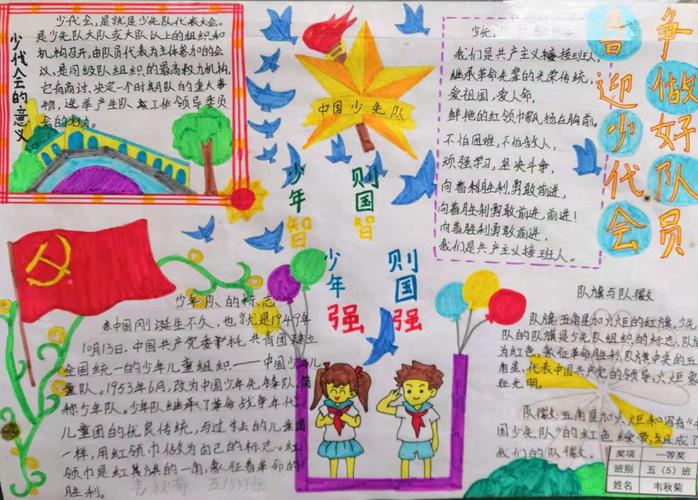 少代会的意义
少代会，是就是少先队代表大会。
是少先队大队或大队以上的组织和
机构召开，由队员代表为主体参加的会
议，是同级队组织的最高权力机构。
它有商讨、决定一个时期队的重大事
物，选举产生队工作领导委员
会的权力。
中国少先队
少年智
则国智
少年强
则国强
我们是共产主义接班人，
继承革命先辈的光荣传统，
爱祖国，爱人命，
鲜艳的红领巾飘扬在胸前。
不怕困难，不怕敌人，
顽强学习，坚决斗争，
向着胜利勇敢前进，
向着胜利勇敢前进，前进！
向着胜利勇敢前进，
我们是共产主义接班人。
争做好队员
喜迎少代会
少年队的标志
新中国刚诞生不久，也就是1949年
10月13日，中国共产党委托共青团建立
全国统一的少年儿童组织——中国少年儿
童队。1953年6月，改为中国少年先锋队，简
称少年队。少年队继承了革命战争年代
儿童团的优良传统，与过去的儿童团
一样，用红领巾做为自己的标志。红
领巾是红其旗的一角，象征着革命的
胜利。
韦秋菊 五（5）班
队旗与队徽
队旗：五角星加火炬的红旗，少先
队的队旗是少先队组织的标志，队旗
为红色，象征革命胜利，队旗中央的五
角星，代表中国共产党的领导，火炬象
征光明。
队徽：五角星加火炬和写有“中
国少先队”的红色绶带，组成了
我们的队徽。
奖项 一等奖
班别 五（5）班
姓名 韦秋菊